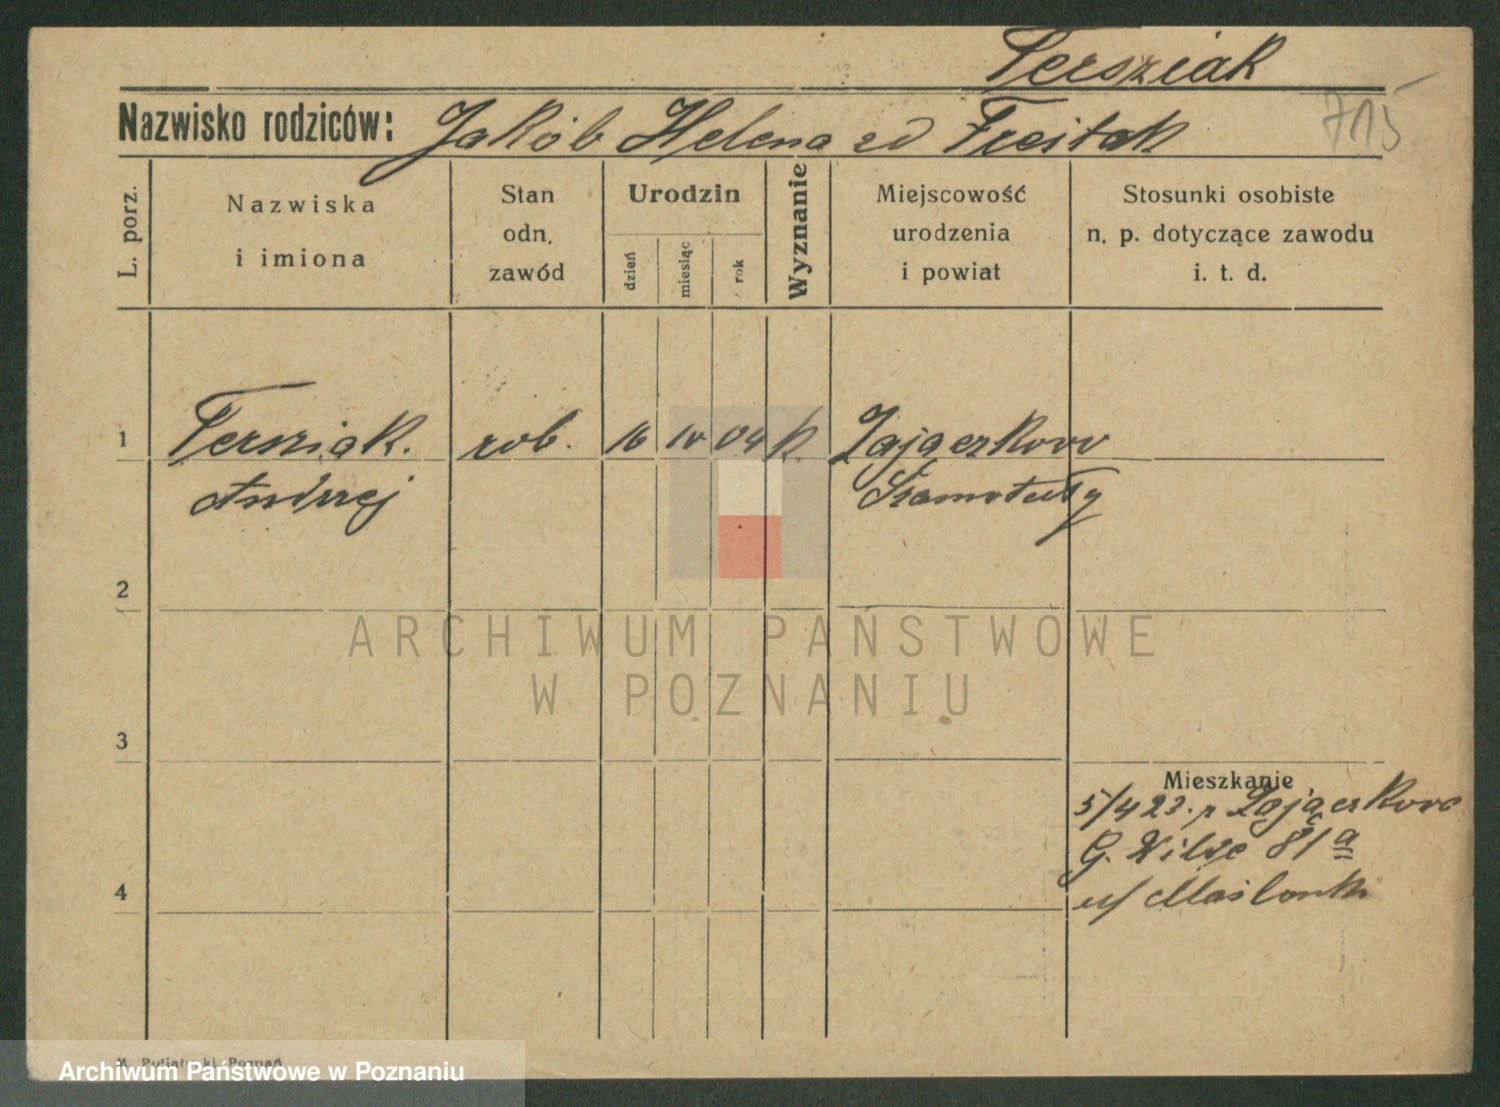 Tersziak
715
Nazwisko rodziców: Jakób Helena zd Frejtak
L. porz.
Nazwiska
i imiona
Stan
odn.
zawód
Urodzin
dzień
miesiąc
rok
Wyznanie
Miejscowość
urodzenia
i powiat
Stosunki osobiste
n. p. dotyczące zawodu
i. t. d.
1 Tersziak. rob. 16 IV 04 k. Zajączkowo
Andrzej Szamotuły
2
ARCHIWUM PAŃSTWOWE
W POZNANIU
3
Mieszkanie
5/4 23. z Zajączkowo
G. Wilde 81a
4
u/ Maślonki
Archiwum Państwowe w Poznaniu